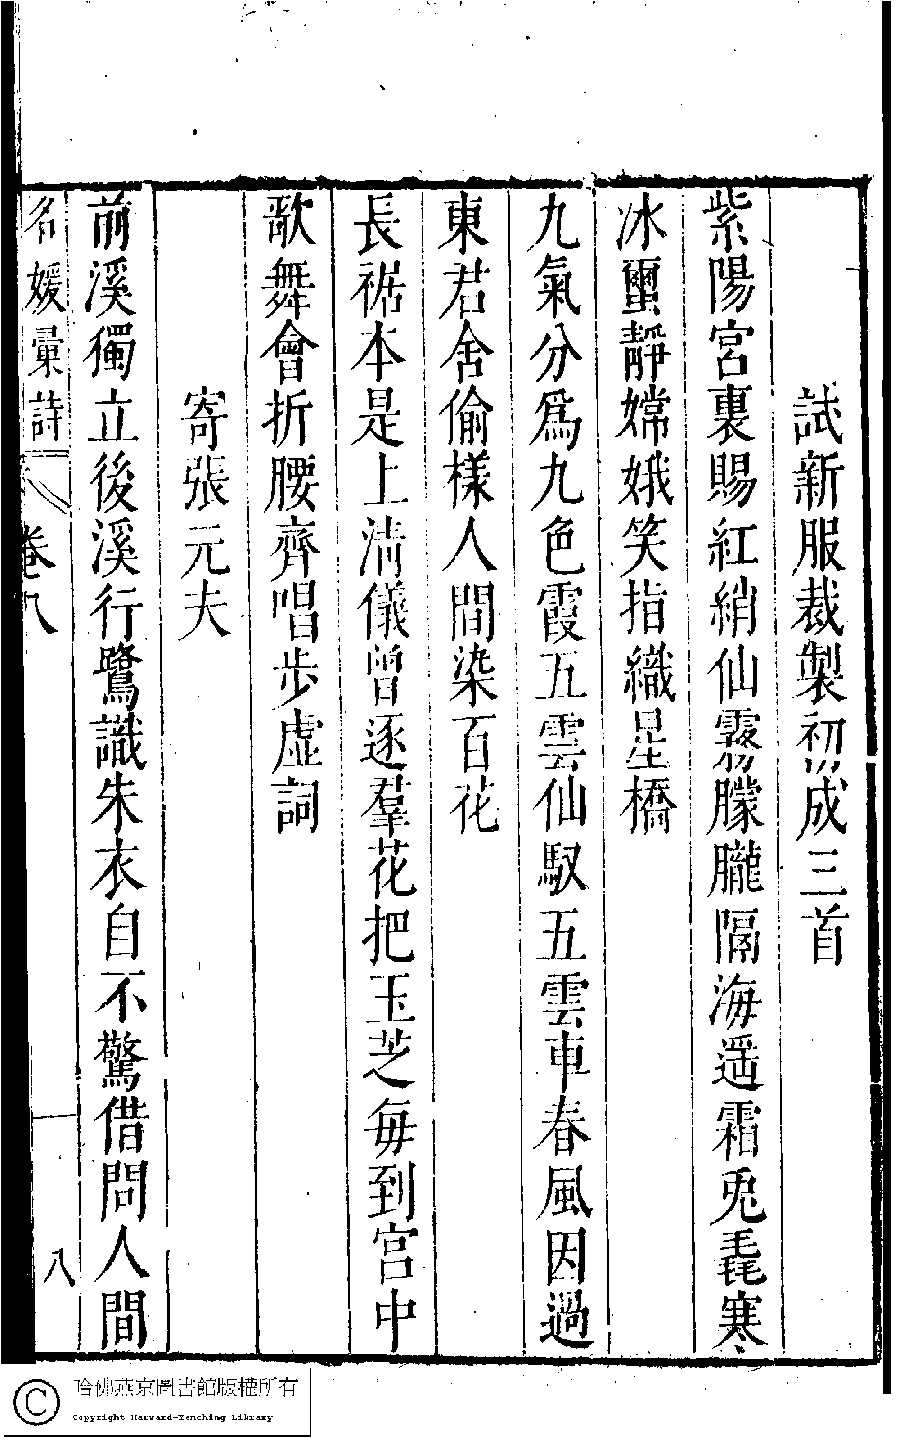 試新服裁製初成三首
紫陽宮裏賜紅綃仙霧朦朧隔海遥霜兎毳寒
冰蠒靜嫦娥笑指織星橋
九氣分爲九色霞五雲仙馭五雲車春風因過
東君舍偷樣人間染百花
長裾本是上清儀曾逐羣花把玉芝每到宮中
歌舞會折腰齊唱步虛詞
寄張元夫
前溪獨立後溪行鷺識朱衣自不驚借問人間
名媛彙詩 卷八 八
哈佛燕京圖書館版權所有
Copyright Harvard-Yenching Library